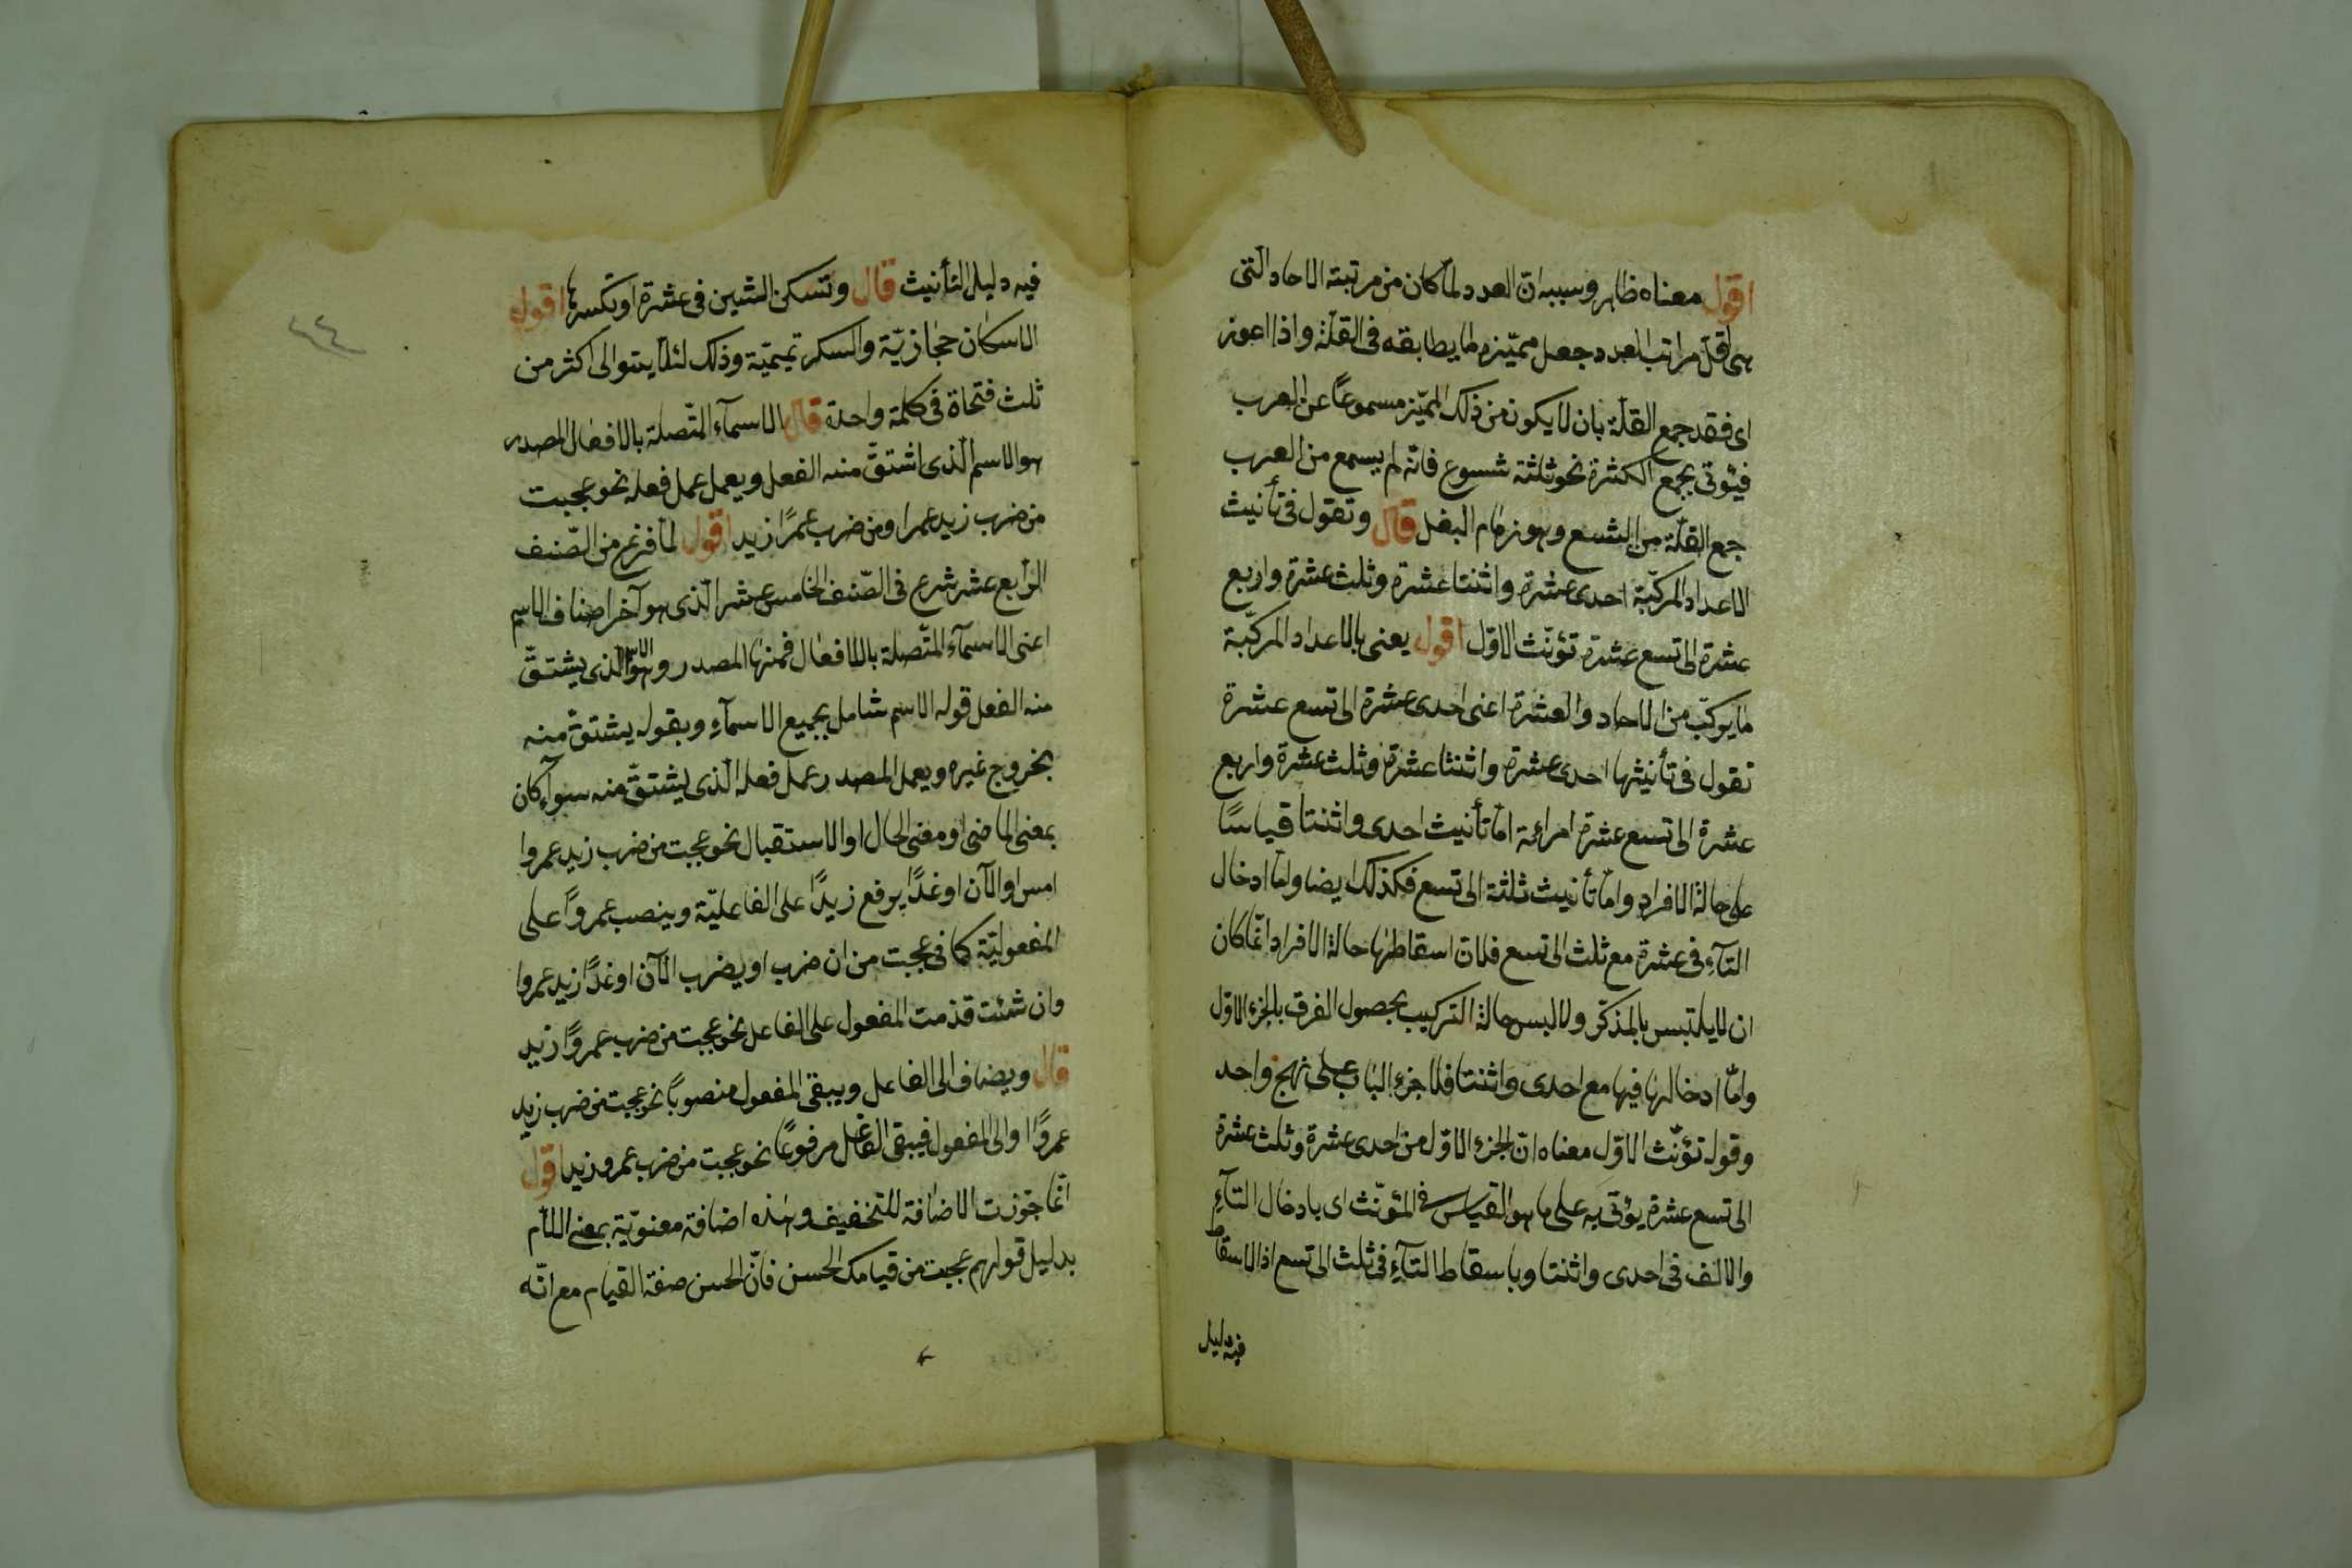 اقول معناه ظاهر وسببه انّ العدد لمّا كان من مرتبة الاحاد الّتى
هى اقلّ مراتب العدد جعل مميّزه لما يطابقه فى القلّة واذا اعوز
اى فقد جمع القلّة بان لا يكون من ذلك المميّز مسموعًا عن العرب
فيؤتى بجمع الكثرة نحو ثلثة شسوع فانّه لم يسمع من العرب
جمع القلّة من الشسع وهو زمام البغل قال وتقول فى تأنيث
الاعداد المركّبة احدى عشرة واثنتا عشرة وثلث عشرة واربع
عشرة الى تسع عشرة تؤنّث الاوّل اقول يعنى بالاعداد المركّبة
ما يركّب من الاحاد والعشرة اعنى احدى عشرة الى تسع عشرة
تقول فى تأنيثها احدى عشرة واثنتا عشرة وثلث عشرة واربع
عشرة الى تسع عشرة امرائة امّا تأنيث احدى واثنتا قياسًا
على حالة الافراد وامّا تأنيث ثلثة الى تسع فكذلك ايضا وامّا ادخال
التآء فى عشرة مع ثلث الى تسع فلان اسقاطها حالة الافراد انّما كان
ان لا يلتبس بالمذكّر ولا لبس حالة التركيب بحصول الفرق بالجزء الاوّل
وامّا ادخالها فيها مع احدى واثنتا فلاجزء الباب على نهج واحد
وقوله تؤنّث الاوّل معناه انّ الجزء الاوّل من احدى عشرة وثلث عشرة
الى تسع عشرة يؤتى به على ما هو القياس فى المؤنّث اى بادخال التآء
والالف فى احدى واثنتا وباسقاط التآء فى ثلث الى تسع اذ الاسقاط
فيه دليل
٤٤
فيه دليل التأنيث قال وتسكن الشين فى عشرة او تكسرها اقول
الاسكان حجازيّة والكسر تميميّة وذلك لئلّا يتوالى اكثر من
ثلث فتحاة فى كلمة واحدة قال الاسمآء المتّصلة بالافعال المصدر
هو الاسم الّذى اشتقّ منه الفعل ويعمل عمل فعله نحو عجبت
من ضرب زيد عمرا ومن ضرب عمرًا زيد اقول لمّا فرغ من الصّنف
الرّابع عشر شرع فى الصّنف الخامس عشر الّذى هو آخر اصناف الاسم
اعنى الاسمآء المتّصلة بالافعال فمنها المصدر وهو الاسم الّذى يشتقّ
منه الفعل قوله الاسم شامل بجميع الاسمآء وبقوله يشتقّ منه
بخروج غيره ويعمل المصدر عمل فعله الّذى يشتقّ منه سوآء كان
بمعنى الماضى او معنى الحال او الاستقبال نحو عجبت من ضرب زيد عمروا
امس او الآن او غدًا يرفع زيدًا على الفاعليّة وينصب عمروًا على
المفعوليّة كما فى عجبت من ان ضرب او يضرب الآن او غدًا زيد عمروا
وان شئت قدّمت المفعول على الفاعل نحو عجبت من ضرب عمروًا زيد
قال ويضاف الى الفاعل ويبقى المفعول منصوبًا نحو عجبت من ضرب زيد
عمروًا والى المفعول فيبقى الفاعل مرفوعًا نحو عجبت من ضرب عمرو زيد اقول
انّما جوّزت الاضافة للتخفيف وهذه اضافة معنويّة بمعنى اللام
بدليل قولهم عجبت من قيامك الحسن فانّ الحسن صفة القيام مع انّه